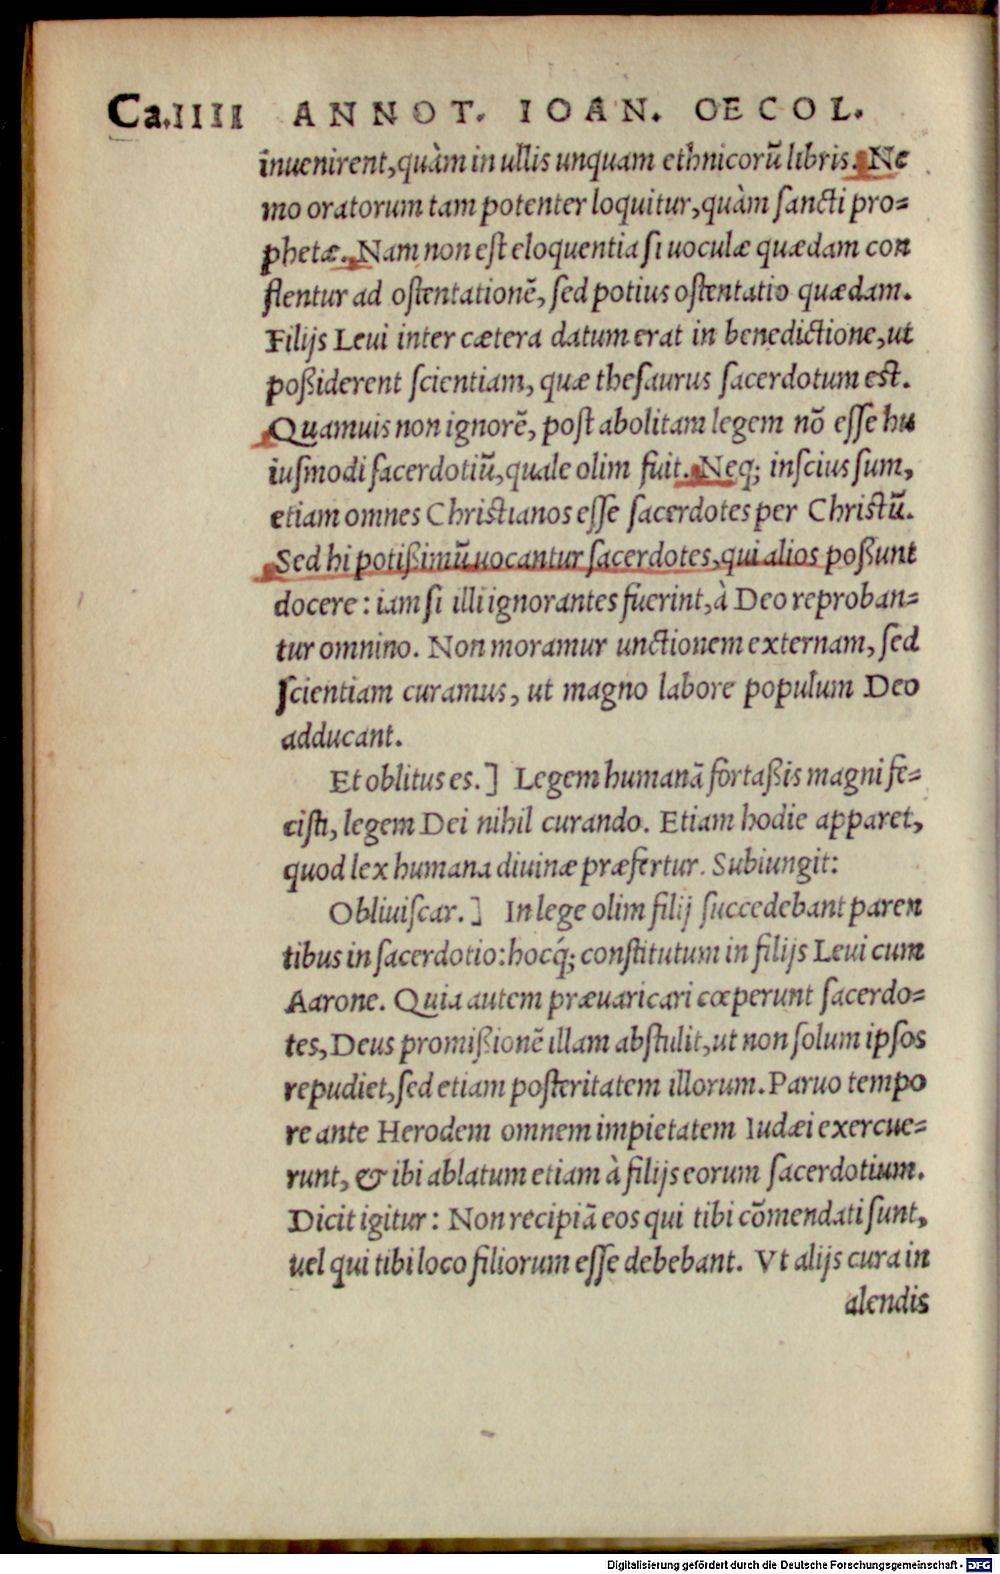 Ca.IIII ANNOT. IOAN. OECOL.
inuenirent, quàm in ullis unquam ethnicorũ libris. Ne
mo oratorum tam potenter loquitur, quàm sancti pro=
phetæ. Nam non est eloquentia si uoculæ quædam con
flentur ad ostentationẽ, sed potius ostentatio quædam.
Filijs Leui inter cætera datum erat in benedictione, ut
poßiderent scientiam, quæ thesaurus sacerdotum est.
Quamuis non ignorẽ, post abolitam legem nõ esse hu
iusmodi sacerdotiũ, quale olim fuit. Neq; inscius sum,
etiam omnes Christianos esse sacerdotes per Christũ.
Sed hi potißimũ uocantur sacerdotes, qui alios poßunt
docere: iam si illi ignorantes fuerint, à Deo reproban=
tur omnino. Non moramur unctionem externam, sed
scientiam curamus, ut magno labore populum Deo
adducant.
Et oblitus es.] Legem humanã fortaßis magni fe=
cisti, legem Dei nihil curando. Etiam hodie apparet,
quod lex humana diuinæ præfertur. Subiungit:
Obliuiscar.] In lege olim filij succedebant paren
tibus in sacerdotio: hocq́; constitutum in filijs Leui cum
Aarone. Quia autem præuaricari cœperunt sacerdo=
tes, Deus promißionẽ illam abstulit, ut non solum ipsos
repudiet, sed etiam posteritatem illorum. Paruo tempo
re ante Herodem omnem impietatem Iudæi exercue=
runt, & ibi ablatum etiam à filijs eorum sacerdotium.
Dicit igitur: Non recipiã eos qui tibi cõmendati sunt,
uel qui tibi loco filiorum esse debebant. Vt alijs cura in
alendis
Digitalisierung gefördert durch die Deutsche Forschungsgemeinschaft - DFG